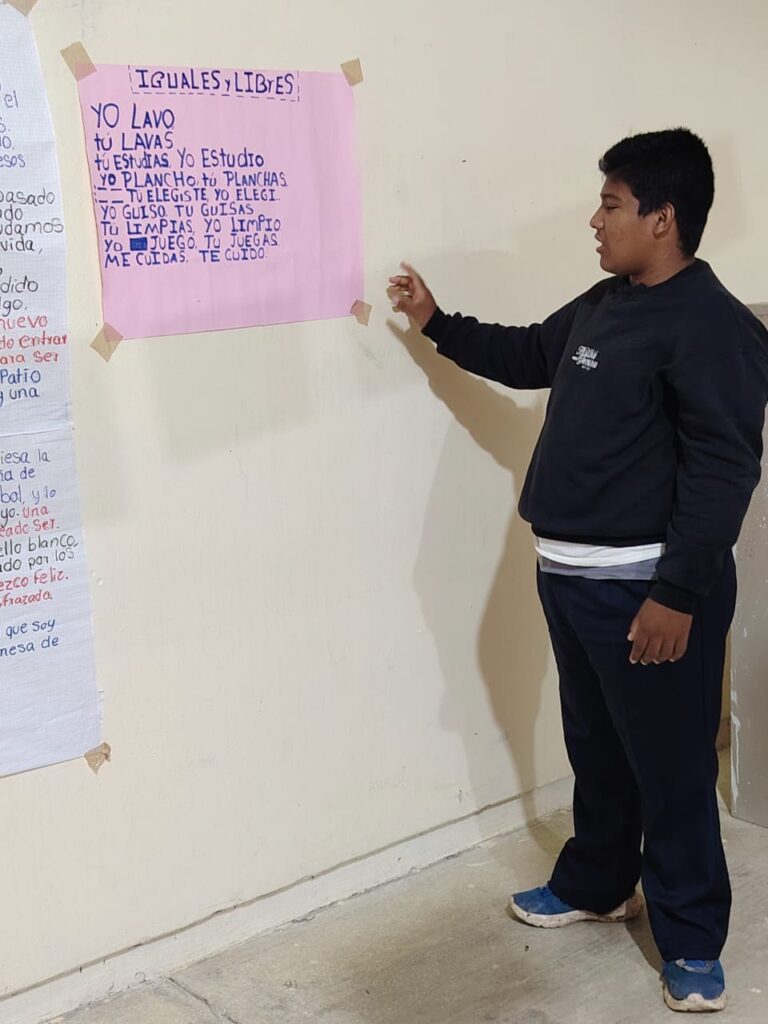 el
S.
esos
pasado
ado
udamos
vida,
o
dido
lgo.
nuevo
do entrar
ara ser
Patio
y una
iesa la
ña de
bol, y lo
yo. una
eado ser.
ello blanco,
ado por los
ezco feliz.
sfrazada
que soy
mesa de
IGUALES y LIBrES
YO LAVO
tú LAVAS
tú EStUdIAS, Yo EStudio
yo PLANCHO, tú PLANCHAS
TU ELEGISTE, YO ELEGI
YO GUISO, TU GUISAS
TÚ LIMPIAS, YO LIMPIO
Yo JUEGO, TU JUEGAS
ME CUIDAS, TE CUIDO.